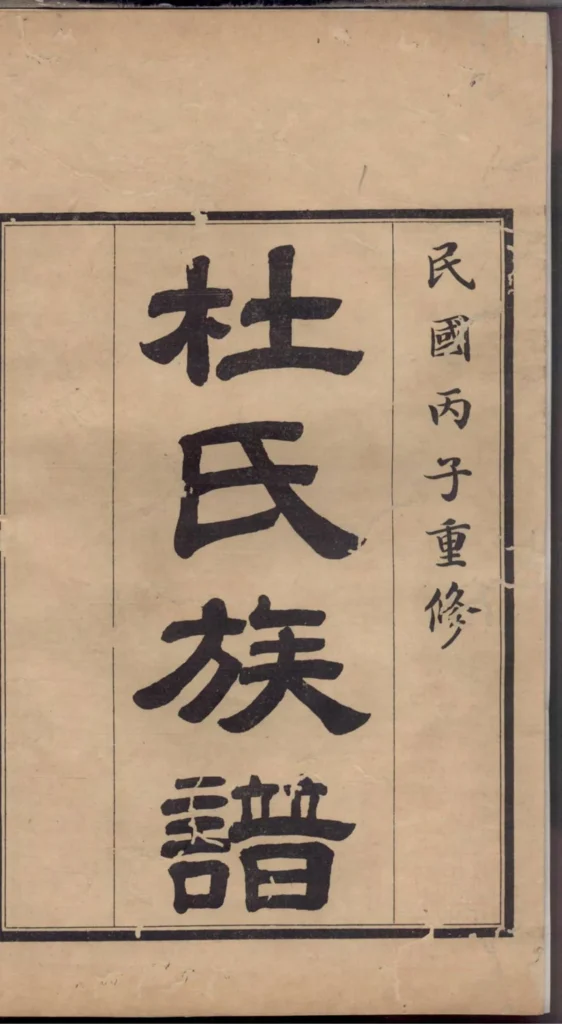 民國丙子重修
杜氏族譜